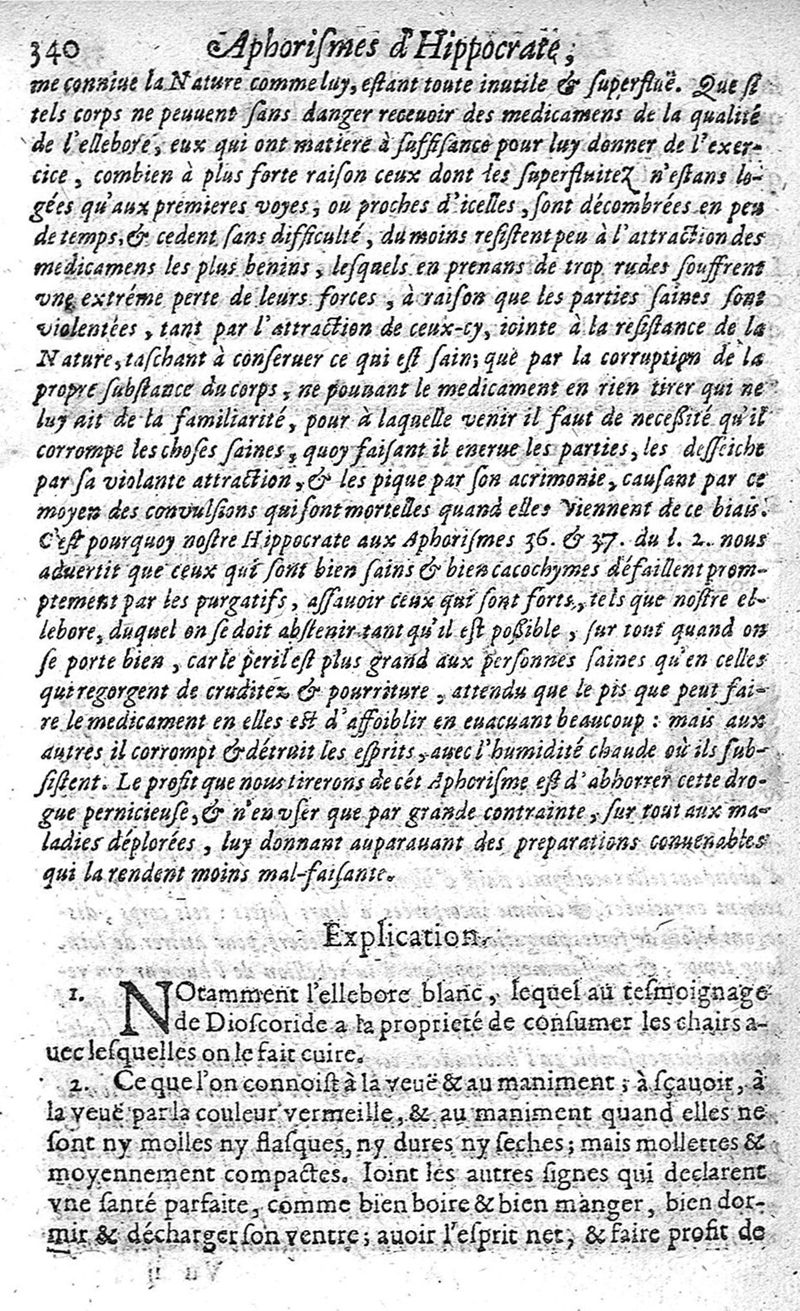 340 Aphoriſmes d'Hippocrate,
me conniue la Nature comme luy, eſtant toute inutile & ſuperfluë. Que ſi
tels corps ne peuuent ſans danger receuoir des medicamens de la qualité
de l'ellebore, eux qui ont matiere à ſuffiſance pour luy donner de l'exer-
cice, combien à plus forte raiſon ceux dont les ſuperfluitez n'eſtans lo-
gées qu'aux premieres voyes, ou proches d'icelles, ſont décombrées en peu
de temps, & cedent ſans difficulté, du moins reſiſtent peu à l'attraction des
medicamens les plus benins, leſquels en prenans de trop rudes ſouffrent
vne extréme perte de leurs forces, à raiſon que les parties ſaines ſont
violentées, tant par l'attraction de ceux-cy, iointe à la reſiſtance de la
Nature, taſchant à conſeruer ce qui eſt ſain; que par la corruption de la
propre ſubſtance du corps, ne pouuant le medicament en rien tirer qui ne
luy ait de la familiarité, pour à laquelle venir il faut de neceßité qu'il
corrompe les choſes ſaines, quoy faiſant il enerue les parties, les deſſeiche
par ſa violante attraction, & les pique par ſon acrimonie, cauſant par ce
moyen des conuulſions qui ſont mortelles quand elles viennent de ce biais.
C'eſt pourquoy noſtre Hippocrate aux Aphoriſmes 36. & 37. du l. 2. nous
aduertit que ceux qui ſont bien ſains & bien cacochymes défaillent prom-
ptement par les purgatifs, aſſauoir ceux qui ſont forts, tels que noſtre el-
lebore, duquel on ſe doit abſtenir tant qu'il eſt poßible, ſur tout quand on
ſe porte bien, car le peril eſt plus grand aux perſonnes ſaines qu'en celles
qui regorgent de cruditez & pourriture, attendu que le pis que peut fai-
re le medicament en elles eſt d'affoiblir en euacuant beaucoup : mais aux
autres il corrompt & détruit les eſprits, auec l'humidité chaude où ils ſub-
ſiſtent. Le profit que nous tirerons de cét Aphoriſme eſt d'abhorrer cette dro-
gue pernicieuſe, & n'en vſer que par grande contrainte, ſur tout aux ma-
ladies déplorées, luy donnant auparauant des preparations conuenables
qui la rendent moins mal-faiſante.
Explication.
1. NOtamment l'ellebore blanc, lequel au teſmoignage
de Dioſcoride a la proprieté de conſumer les chairs a-
uec leſquelles on le fait cuire.
2. Ce que l'on connoiſt à la veuë & au maniment ; à ſçauoir, à
la veuë par la couleur vermeille, & au maniment quand elles ne
ſont ny molles ny flaſques, ny dures ny ſeches ; mais mollettes &
moyennement compactes. Ioint les autres ſignes qui declarent
vne ſanté parfaite, comme bien boire & bien manger, bien dor-
mir & décharger ſon ventre ; auoir l'eſprit net, & faire profit de